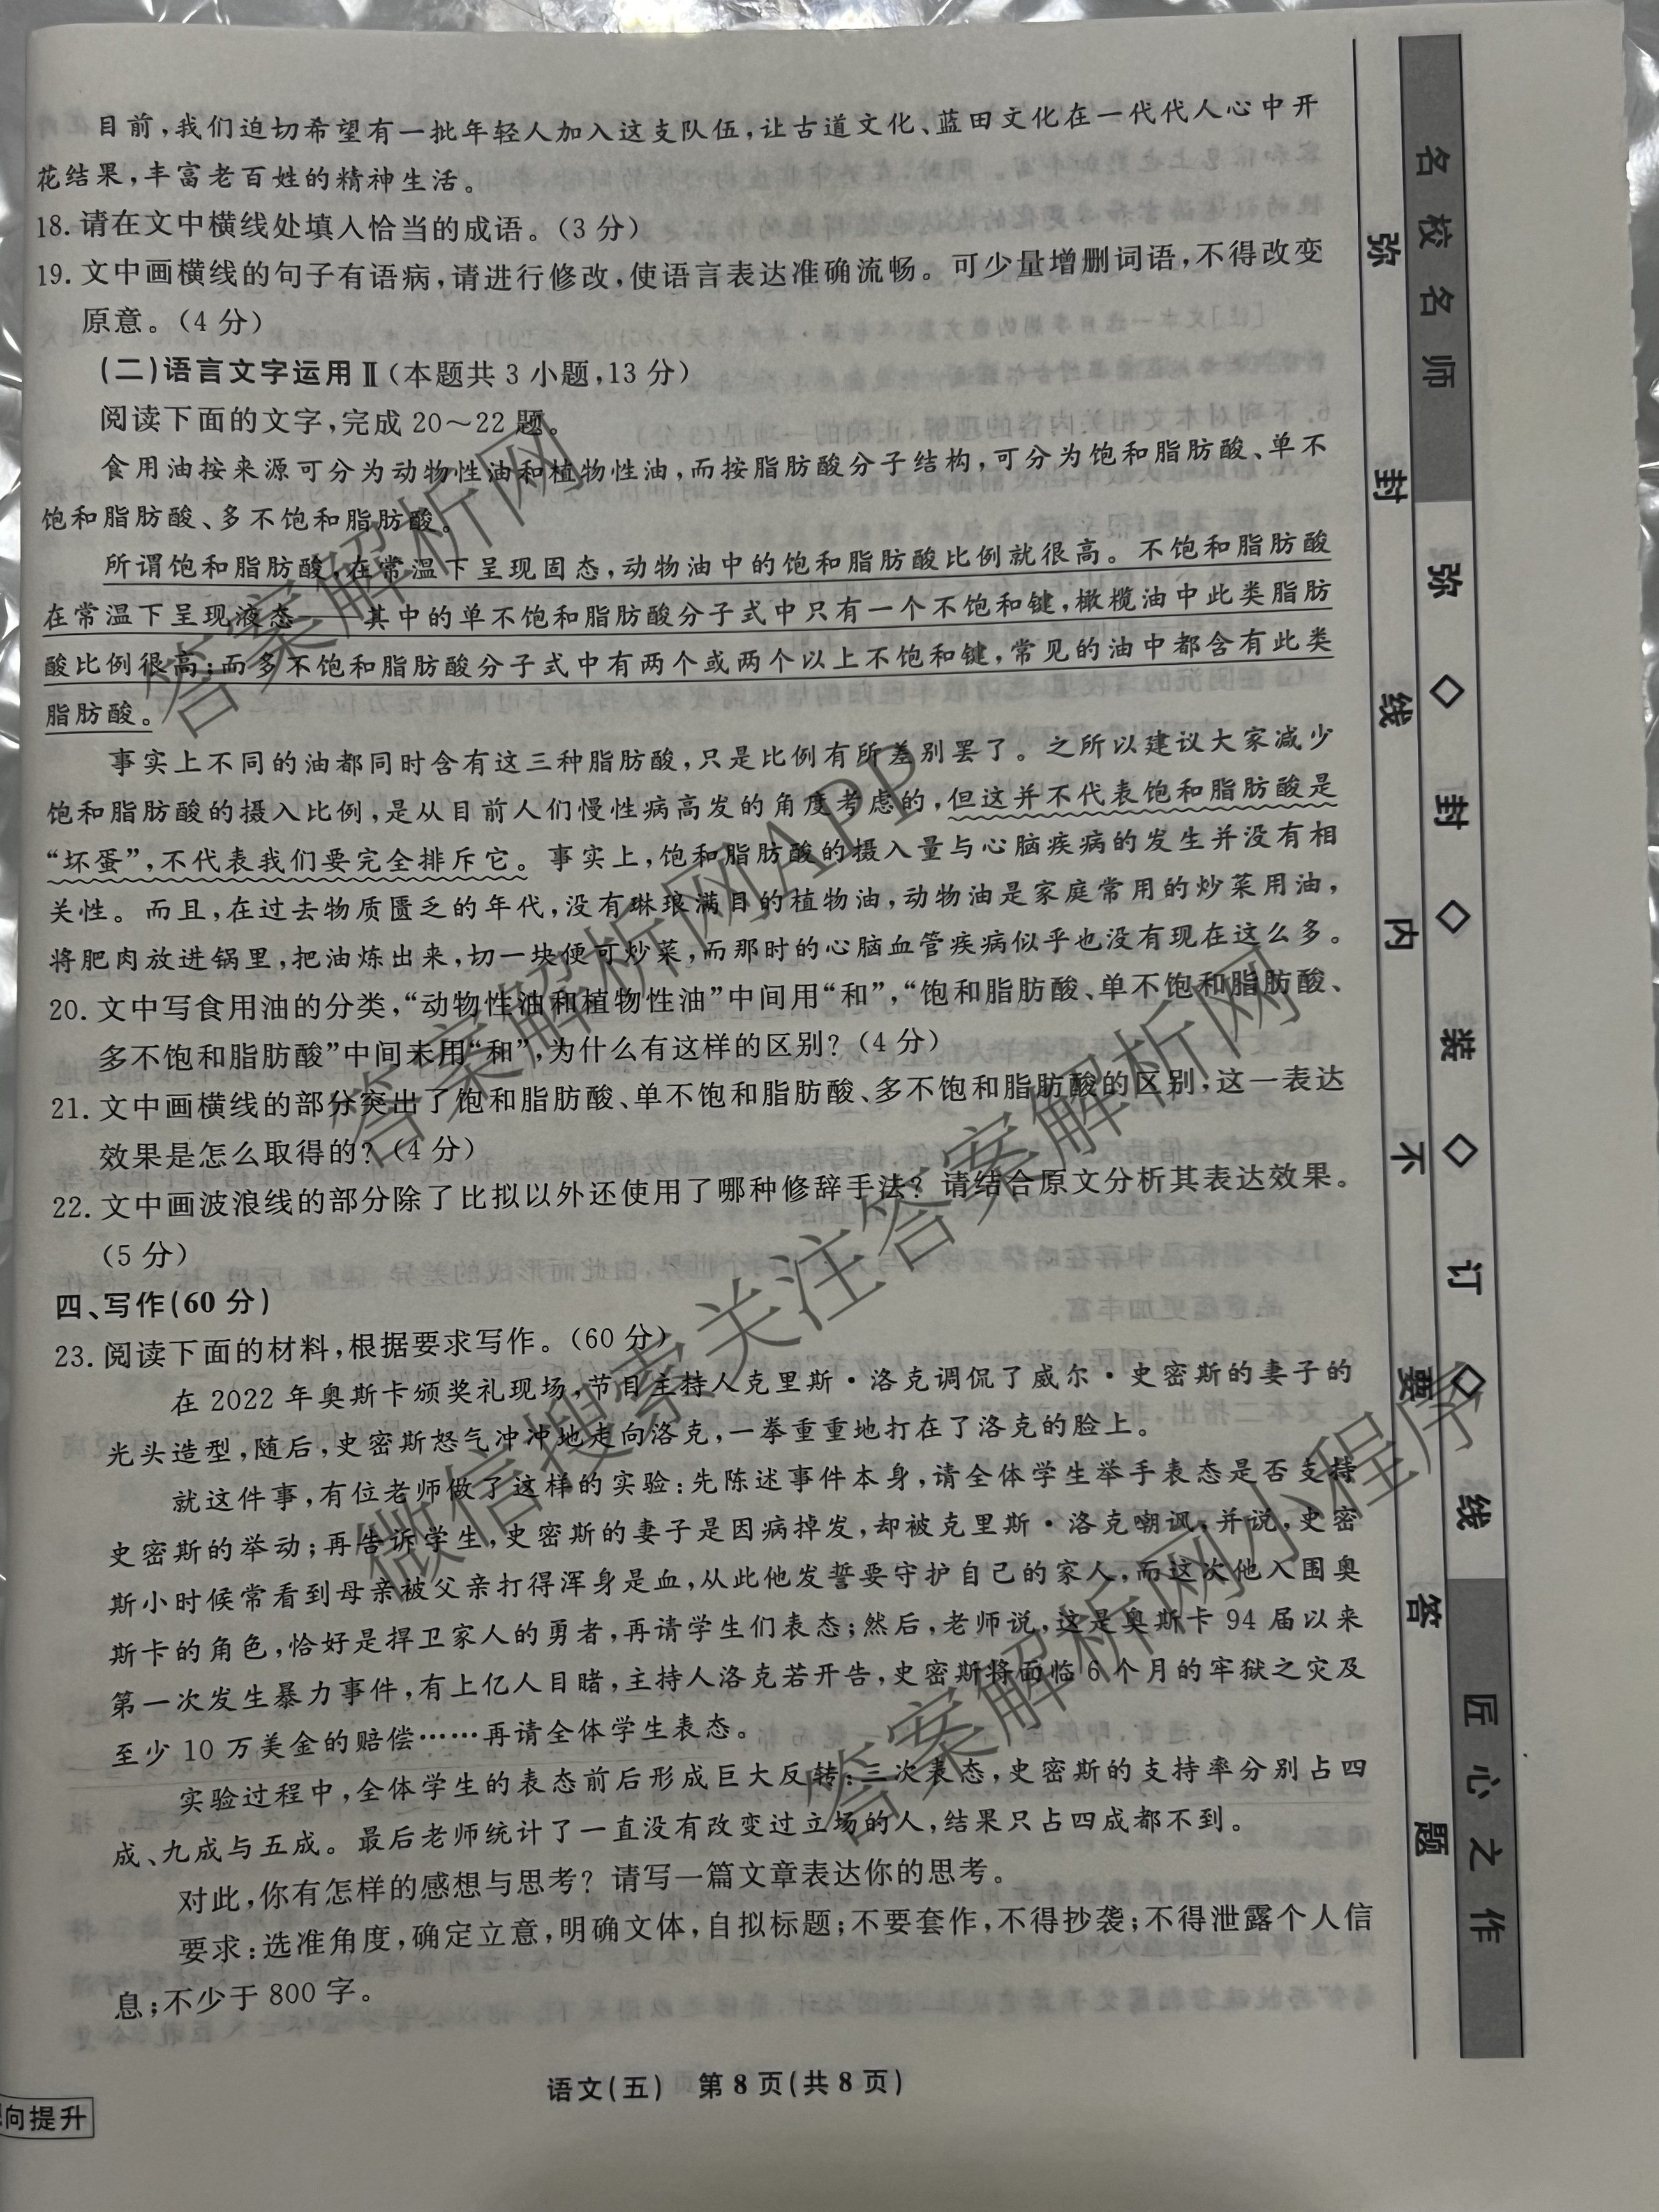 目前,我们迫切希望有一批年轻人加入这支队伍,让古道文化、蓝田文化在一代代人心中开
花结果,丰富老百姓的精神生活。
18. 请在文中横线处填入恰当的成语。(3 分)
19. 文中画横线的句子有语病,请进行修改,使语言表达准确流畅。可少量增删词语,不得改变
原意。(4 分)
(二)语言文字运用Ⅱ(本题共 3 小题,13 分)
阅读下面的文字,完成 20～22 题。
食用油按来源可分为动物性油和植物性油,而按脂肪酸分子结构,可分为饱和脂肪酸、单不
饱和脂肪酸、多不饱和脂肪酸。
所谓饱和脂肪酸,在常温下呈现固态,动物油中的饱和脂肪酸比例就很高。不饱和脂肪酸
在常温下呈现液态——其中的单不饱和脂肪酸分子式中只有一个不饱和键,橄榄油中此类脂肪
酸比例很高;而多不饱和脂肪酸分子式中有两个或两个以上不饱和键,常见的油中都含有此类
脂肪酸。
事实上不同的油都同时含有这三种脂肪酸,只是比例有所差别罢了。之所以建议大家减少
饱和脂肪酸的摄入比例,是从目前人们慢性病高发的角度考虑的,但这并不代表饱和脂肪酸是
“坏蛋”,不代表我们要完全排斥它。事实上,饱和脂肪酸的摄入量与心脑疾病的发生并没有相
关性。而且,在过去物质匮乏的年代,没有琳琅满目的植物油,动物油是家庭常用的炒菜用油,
将肥肉放进锅里,把油炼出来,切一块便可炒菜,而那时的心脑血管疾病似乎也没有现在这么多。
20. 文中写食用油的分类,“动物性油和植物性油”中间用“和”,“饱和脂肪酸、单不饱和脂肪酸、
多不饱和脂肪酸”中间未用“和”,为什么有这样的区别? (4 分)
21. 文中画横线的部分突出了饱和脂肪酸、单不饱和脂肪酸、多不饱和脂肪酸的区别,这一表达
效果是怎么取得的? (4 分)
22. 文中画波浪线的部分除了比拟以外还使用了哪种修辞手法? 请结合原文分析其表达效果。
(5 分)
四、写作(60 分)
23. 阅读下面的材料,根据要求写作。(60 分)
在 2022 年奥斯卡颁奖礼现场,节目主持人克里斯·洛克调侃了威尔·史密斯的妻子的
光头造型,随后,史密斯怒气冲冲地走向洛克,一拳重重地打在了洛克的脸上。
就这件事,有位老师做了这样的实验:先陈述事件本身,请全体学生举手表态是否支持
史密斯的举动;再告诉学生,史密斯的妻子是因病掉发,却被克里斯·洛克嘲讽,并说,史密
斯小时候常看到母亲被父亲打得浑身是血,从此他发誓要守护自己的家人,而这次他入围奥
斯卡的角色,恰好是捍卫家人的勇者,再请学生们表态;然后,老师说,这是奥斯卡 94 届以来
第一次发生暴力事件,有上亿人目睹,主持人洛克若开告,史密斯将面临 6 个月的牢狱之灾及
至少 10 万美金的赔偿……再请全体学生表态。
实验过程中,全体学生的表态前后形成巨大反转:三次表态,史密斯的支持率分别占四
成、九成与五成。最后老师统计了一直没有改变过立场的人,结果只占四成都不到。
对此,你有怎样的感想与思考? 请写一篇文章表达你的思考。
要求:选准角度,确定立意,明确文体,自拟标题;不要套作,不得抄袭;不得泄露个人信
息;不少于 800 字。
语文(五) 第 8 页(共 8 页)
向提升
名校名师
弥◇封◇装◇订◇线
匠心之作
弥封线内不要答题
答案解析网
答案解析网APP
微信搜索关注答案解析网
答案解析网小程序